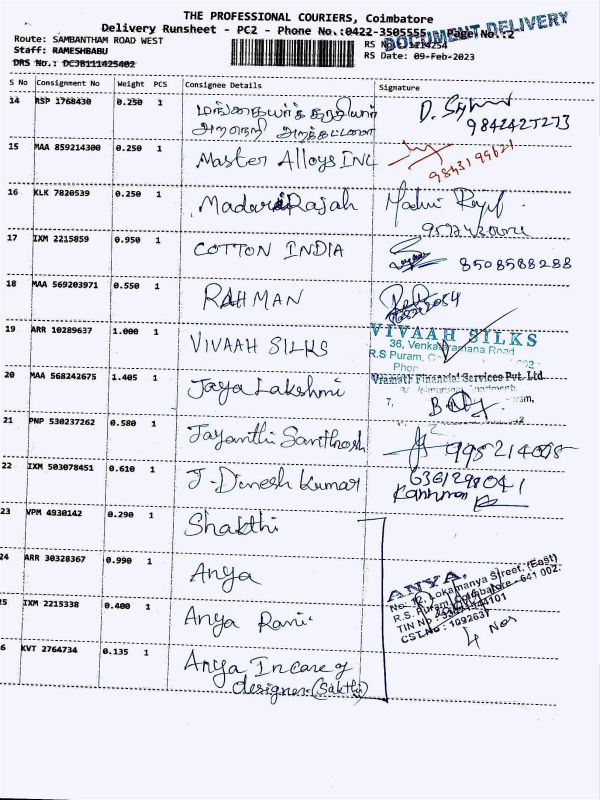 THE PROFESSIONAL COURIERS, Coimbatore
Delivery Runsheet - PC2 - Phone No.:0422-3505555 Page No.:2
DOCUMENT DELIVERY
Route: SAMBANTHAM ROAD WEST
Staff: RAMESHBABU
DRS No.: DCJB111425402
RS Date: 09-Feb-2023
S No Consignment No Weight PCS Consignee Details Signature
14 RSP 1768430 0.250 1 மங்கையர்க்கரசியார்
அறநெறி அறக்கட்டளை
9842427273
15 MAA 859214300 0.250 1 Master Alloys INC
9843199621
16 KLK 7820539 0.250 1 Rajah
17 IXM 2215859 0.950 1 COTTON INDIA 8508588288
18 MAA 569203971 0.550 1 RAHMAN
19 ARR 10289637 1.000 1 VIVAAH SILKS
VIVAAH SILKS
36, Venkataramana Road
R.S Puram,
20 MAA 568242675 1.405 1 Jaya Lakshmi
Vramath Financial Services Pvt. Ltd
7,
21 PNP 530237262 0.580 1 Jayanthi Santhosh
22 IXM 503078451 0.610 1 J. Dinesh Kumar
23 VPM 4930142 0.290 1 Shakthi
24 ARR 30328367 0.990 1 Anya
ANYA
No. 12, Lokamanya Street, (East)
R.S. Puram, Coimbatore - 641 002.
TIN No
CST.No : 1092637
4 Nos
25 IXM 2215338 0.400 1 Anya Rani
6 KVT 2764734 0.135 1 Anya Incare of
designer (Sakthi)